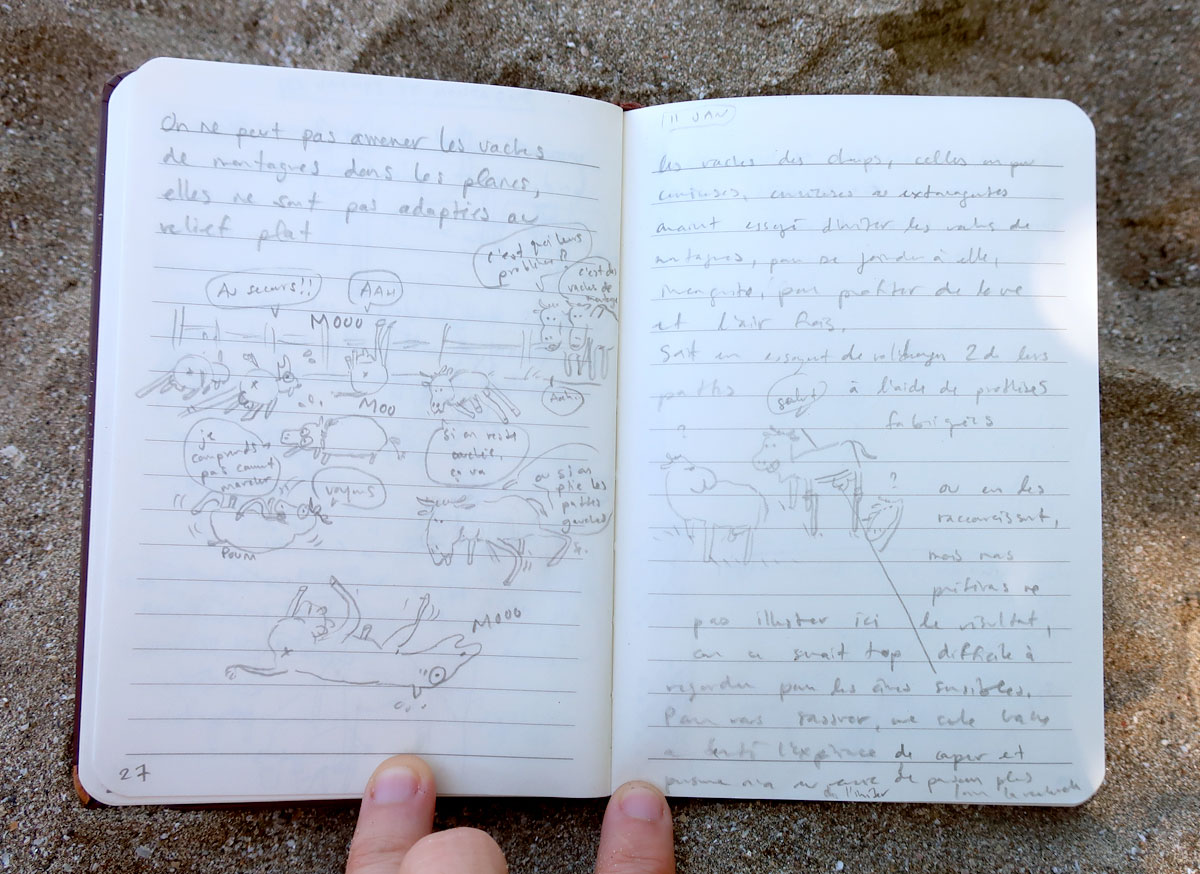 On ne peut pas amener les vaches
de montagnes dans les plaines,
elles ne sont pas adaptées au
relief plat
c'est quoi leurs
problèmes ?
c'est des
vaches de
montagne
Au secours!!
AAH
MOOO
MOO
je
comprends
pas comment
marcher
voyons
si on reste
couchée,
ça va
ou si on
plie les
pattes
gauches
POUM
MOOO
27
11 JAN
les vaches des champs, celles un peu
curieuses, et extravagantes
avaient essayé d'imiter les vaches de
montagnes, pour se joindre à elle,
pour profiter de la vue
et l'air frais.
Soit en essayant de 2 de leurs
pattes à l'aide de prothèses
fabriquées
salut
?
?
ou en les
raccourcissant,
mais nous
préférons ne
pas illustrer ici le résultat,
car ce serait trop difficile à
regarder pour les âmes sensibles.
Pour vous rassurer, une seule vache
a tenté l'expérience de couper et
personne n'a eu envie de
l'imiter